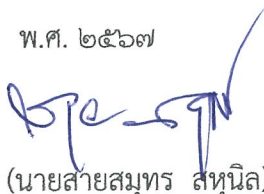 พ.ศ. ๒๕๖๗
(นายสายสมุทร สหุนิล)